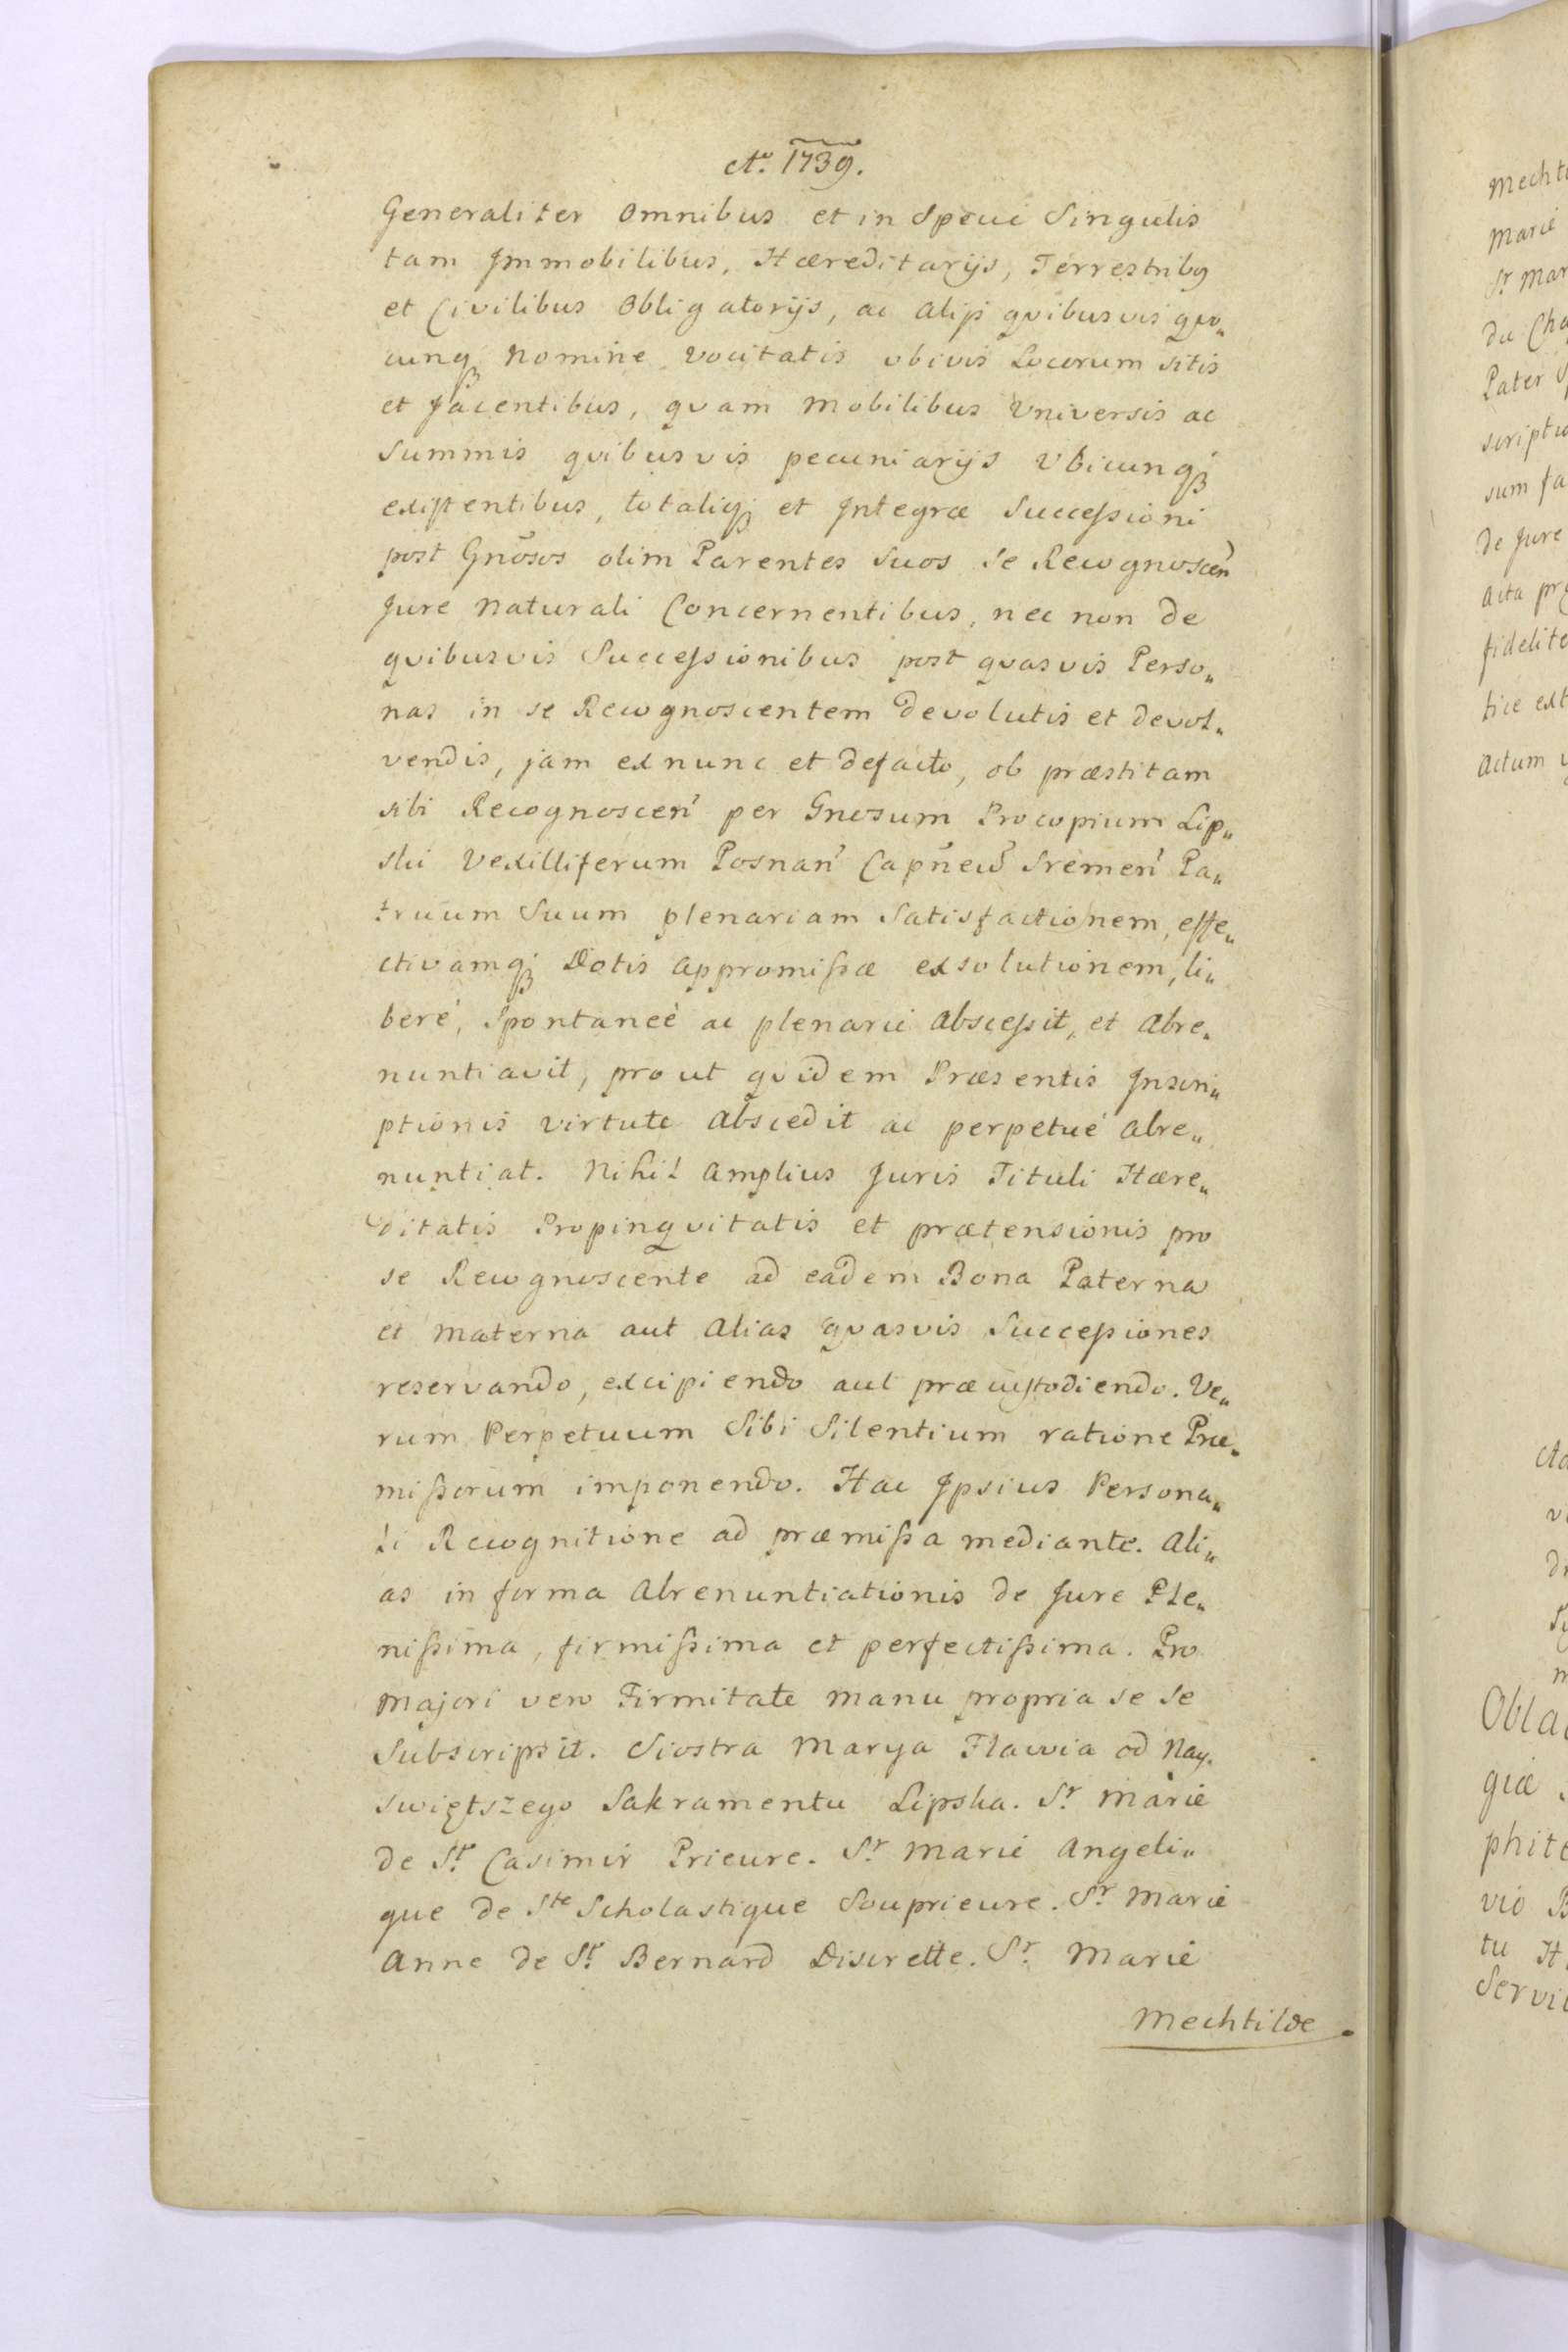 Ao. 1739.
Generaliter Omnibus et in Specie Singulis
tam Immobilibus, Hæreditarijs, Terrestribq
et Civilibus Obligatorijs, ac alijs qvibusvis qvo„
cunqꝫ Nomine vocitatis ubivis Locorum sitis
et Jacentibus, qvam Mobilibus Universis ac
Summis qvibusvis pecuniarijs Ubicunqꝫ
existentibus, totaliqꝫ et Integræ Successioni
post Gnõsos olim Parentes Suos Se Recognosceñ
Jure Naturali Concernentibus, nec non de
qvibusvis Successionibus post qvasvis Perso„
nas in se Recognoscentem devolutis et devol„
vendis, jam ex nunc et defacto, ob præstitam
sibi Recognosceñ per Gnosum Procopium Lip„
ski Vexilliferum Posnañ Capñeũ Sremeñ Pa„
truum Suum plenariam Satisfactionem, effe„
ctivamqꝫ Dotis appromissæ exsolutionem, li„
berè, Spontaneè ac plenarie abscessit, et abre„
nuntiavit, prout qvidem Præsentis Inscri„
ptionis virtute abscedit ac perpetuè abre„
nuntiat. Nihil amplius Juris Tituli Hære„
ditatis Propinqvitatis et prætensionis pro
se Recognoscente ad eadem Bona Paterna
et Materna aut alias qvasvis Successiones
reservando, excipiendo aut præcustodiendo. Ve„
rum Perpetuum Sibi Silentium ratione Præ„
missorum imponendo. Hac Ipsius Persona„
li Recognitione ad præmissa mediante. Ali„
as in forma Abrenuntiationis de Jure Ple„
nissima, firmissima et perfectissima. Pro
Majori vero Firmitate manu propria se se
Subscripsit. Siostra Marya Flawia od Nay„
swiętszego Sakramentu Lipska. Sr Marie
de St Casimir Prieure. Sr Marie Angeli„
que de Ste Scholastique Souprieure. Sr Marie
Anne de St Bernard Discrette. Sr Marie
Mechtilde